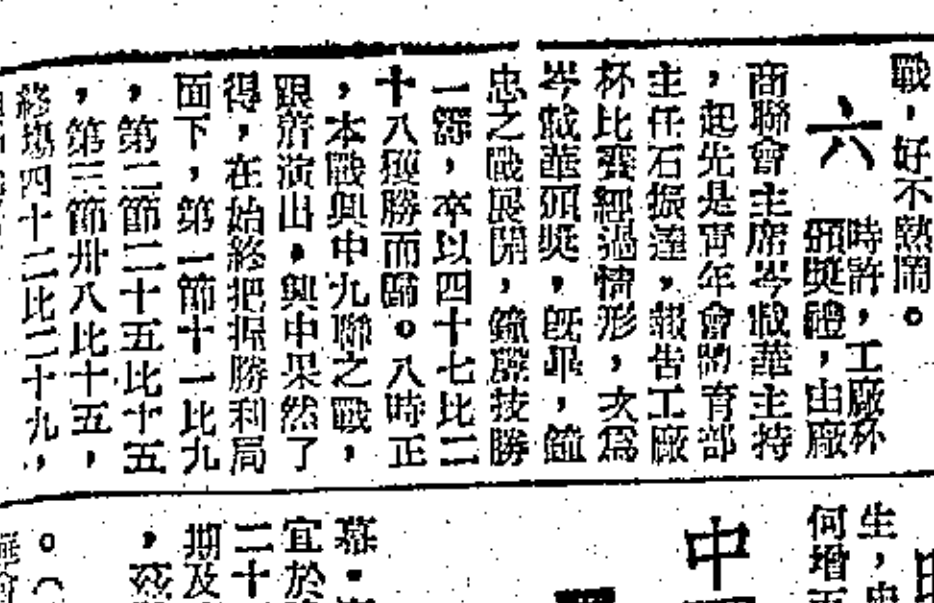 戰,好不熱鬧。
六時許,工廠杯
頒獎禮,由廠
商聯會主席岑載華主持
,起先是靑年會體育部
主任石振達,報告工廠
杯比賽經過情形,次爲
岑載華頒獎,旣畢,鐘
忠之戰展開,鐘廠技勝
一籌,卒以四十七比二
十八獲勝而歸。八時正
,本戰與中九聯之戰,
跟着演出,與中果然了
得,在始終把握勝利局
面下,第一節十一比九
,第二節二十五比十五
,第三節卅八比十五,
終塲四十二比二十九,
生,
何增
中
幕。
宜於
二十
期及
,茲
。(